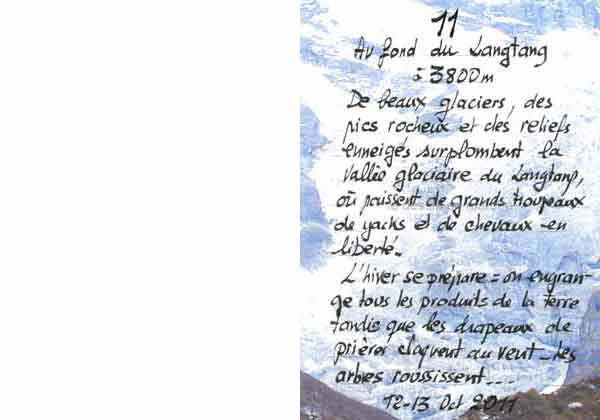 11
Au fond du Langtang
à 3800m
De beaux glaciers, des
pics rocheux et des reliefs
enneigés surplombent la
vallée glaciaire du Langtang,
où paissent de grands troupeaux
de yacks et de chevaux en
liberté.
L'hiver se prépare = on engran-
ge tous les produits de la terre
tandis que les drapeaux de
prières claquent au vent - les
arbres roussissent...
12-13 Oct 2011